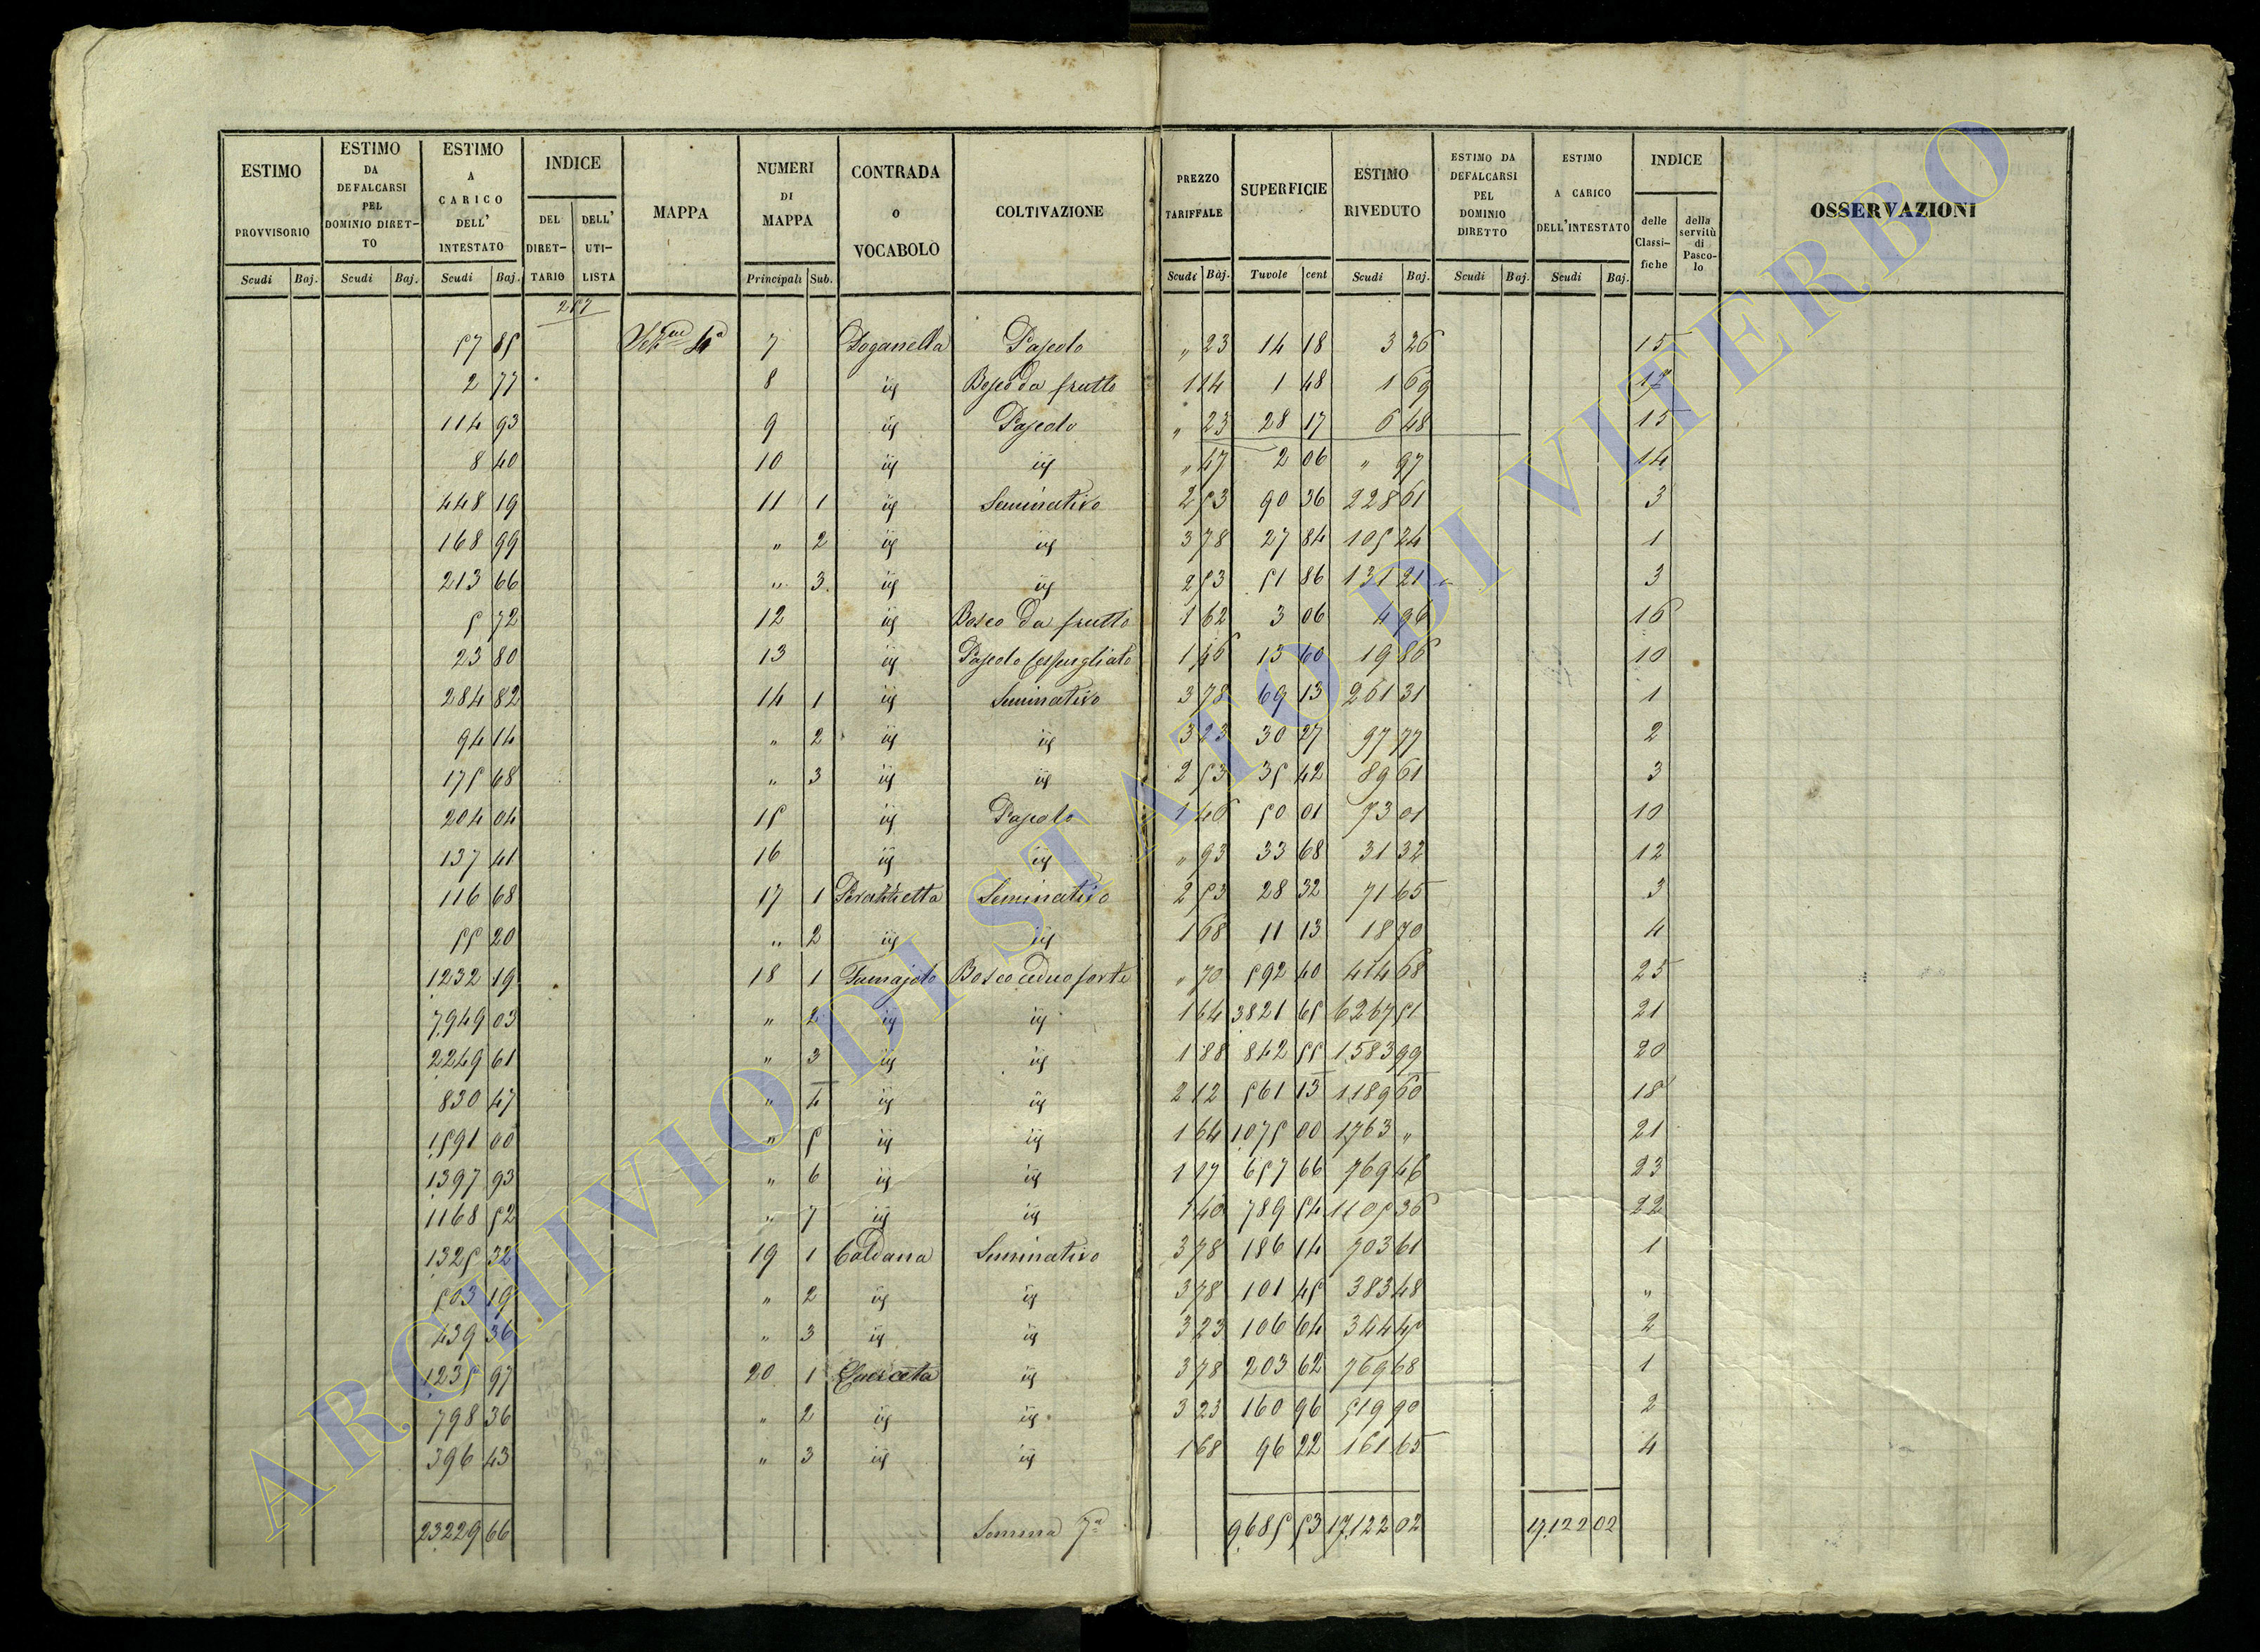 ESTIMO PROVVISORIO Scudi Baj.
ESTIMO DA DEFALCARSI PEL DOMINIO DIRETTO Scudi Baj.
ESTIMO A CARICO DELL' INTESTATO Scudi Baj.
INDICE DEL DIRETTARIO DELL' UTILISTA
MAPPA
NUMERI DI MAPPA Principali Sub.
CONTRADA O VOCABOLO
COLTIVAZIONE
PREZZO TARIFFALE Scudi Baj.
SUPERFICIE Tuvole cent
ESTIMO RIVEDUTO Scudi Baj.
ESTIMO DA DEFALCARSI PEL DOMINIO DIRETTO Scudi Baj.
ESTIMO A CARICO DELL'INTESTATO Scudi Baj.
INDICE delle Classifiche della servitù di Pascolo
OSSERVAZIONI
257
57 85 7 Doganella Pascolo " 23 14 18 3 26 15
2 77 8 id Bosco da frutto 1 14 1 48 1 69 17
114 93 9 id Pascolo " 23 28 17 6 48 15
8 40 10 id id " 47 2 06 " 97 14
448 19 11 1 id Seminativo 2 53 90 36 228 61 3
168 99 " 2 id id 3 78 27 84 105 24 1
213 66 " 3 id id 2 53 51 86 131 21 3
5 72 12 id Bosco da frutto 1 62 3 06 4 96 16
23 80 13 id Pascolo cespugliato 1 46 13 60 19 86 10
284 82 14 1 id Seminativo 3 78 69 13 261 31 1
94 14 " 2 id id 3 23 30 27 97 77 2
175 68 " 3 id id 2 53 35 42 89 61 3
204 04 15 id Pascolo 1 46 50 01 73 01 10
137 41 16 id id " 93 33 68 31 32 12
116 68 17 1 Seminativo 2 53 28 32 71 65 3
55 20 " 2 id id 1 68 11 13 18 70 4
1232 19 18 1 Fumajolo Bosco ceduo forte " 70 592 40 414 68 25
7949 03 " 2 id id 1 64 3821 65 6267 51 21
2249 61 " 3 id id 1 88 842 55 1583 99 20
830 47 " 4 id id 2 12 561 13 1189 60 18
1591 00 " 5 id id 1 64 1075 00 1763 " 21
1397 93 " 6 id id 1 17 657 66 769 46 23
1168 52 " 7 id id 1 40 789 54 1105 36 22
1325 32 19 1 Caldana Seminativo 3 78 186 14 703 61 1
503 19 " 2 id id 3 78 101 45 383 48 "
439 36 " 3 id id 3 23 106 64 344 45 2
1235 97 20 1 Querceta id 3 78 203 62 769 68 1
798 36 " 2 id id 3 23 160 96 519 90 2
396 43 " 3 id id 1 68 96 22 161 65 4
23229 66 Somma 7a 9685 53 17,122 02 17,122 02
ARCHIVIO DI STATO DI VITERBO